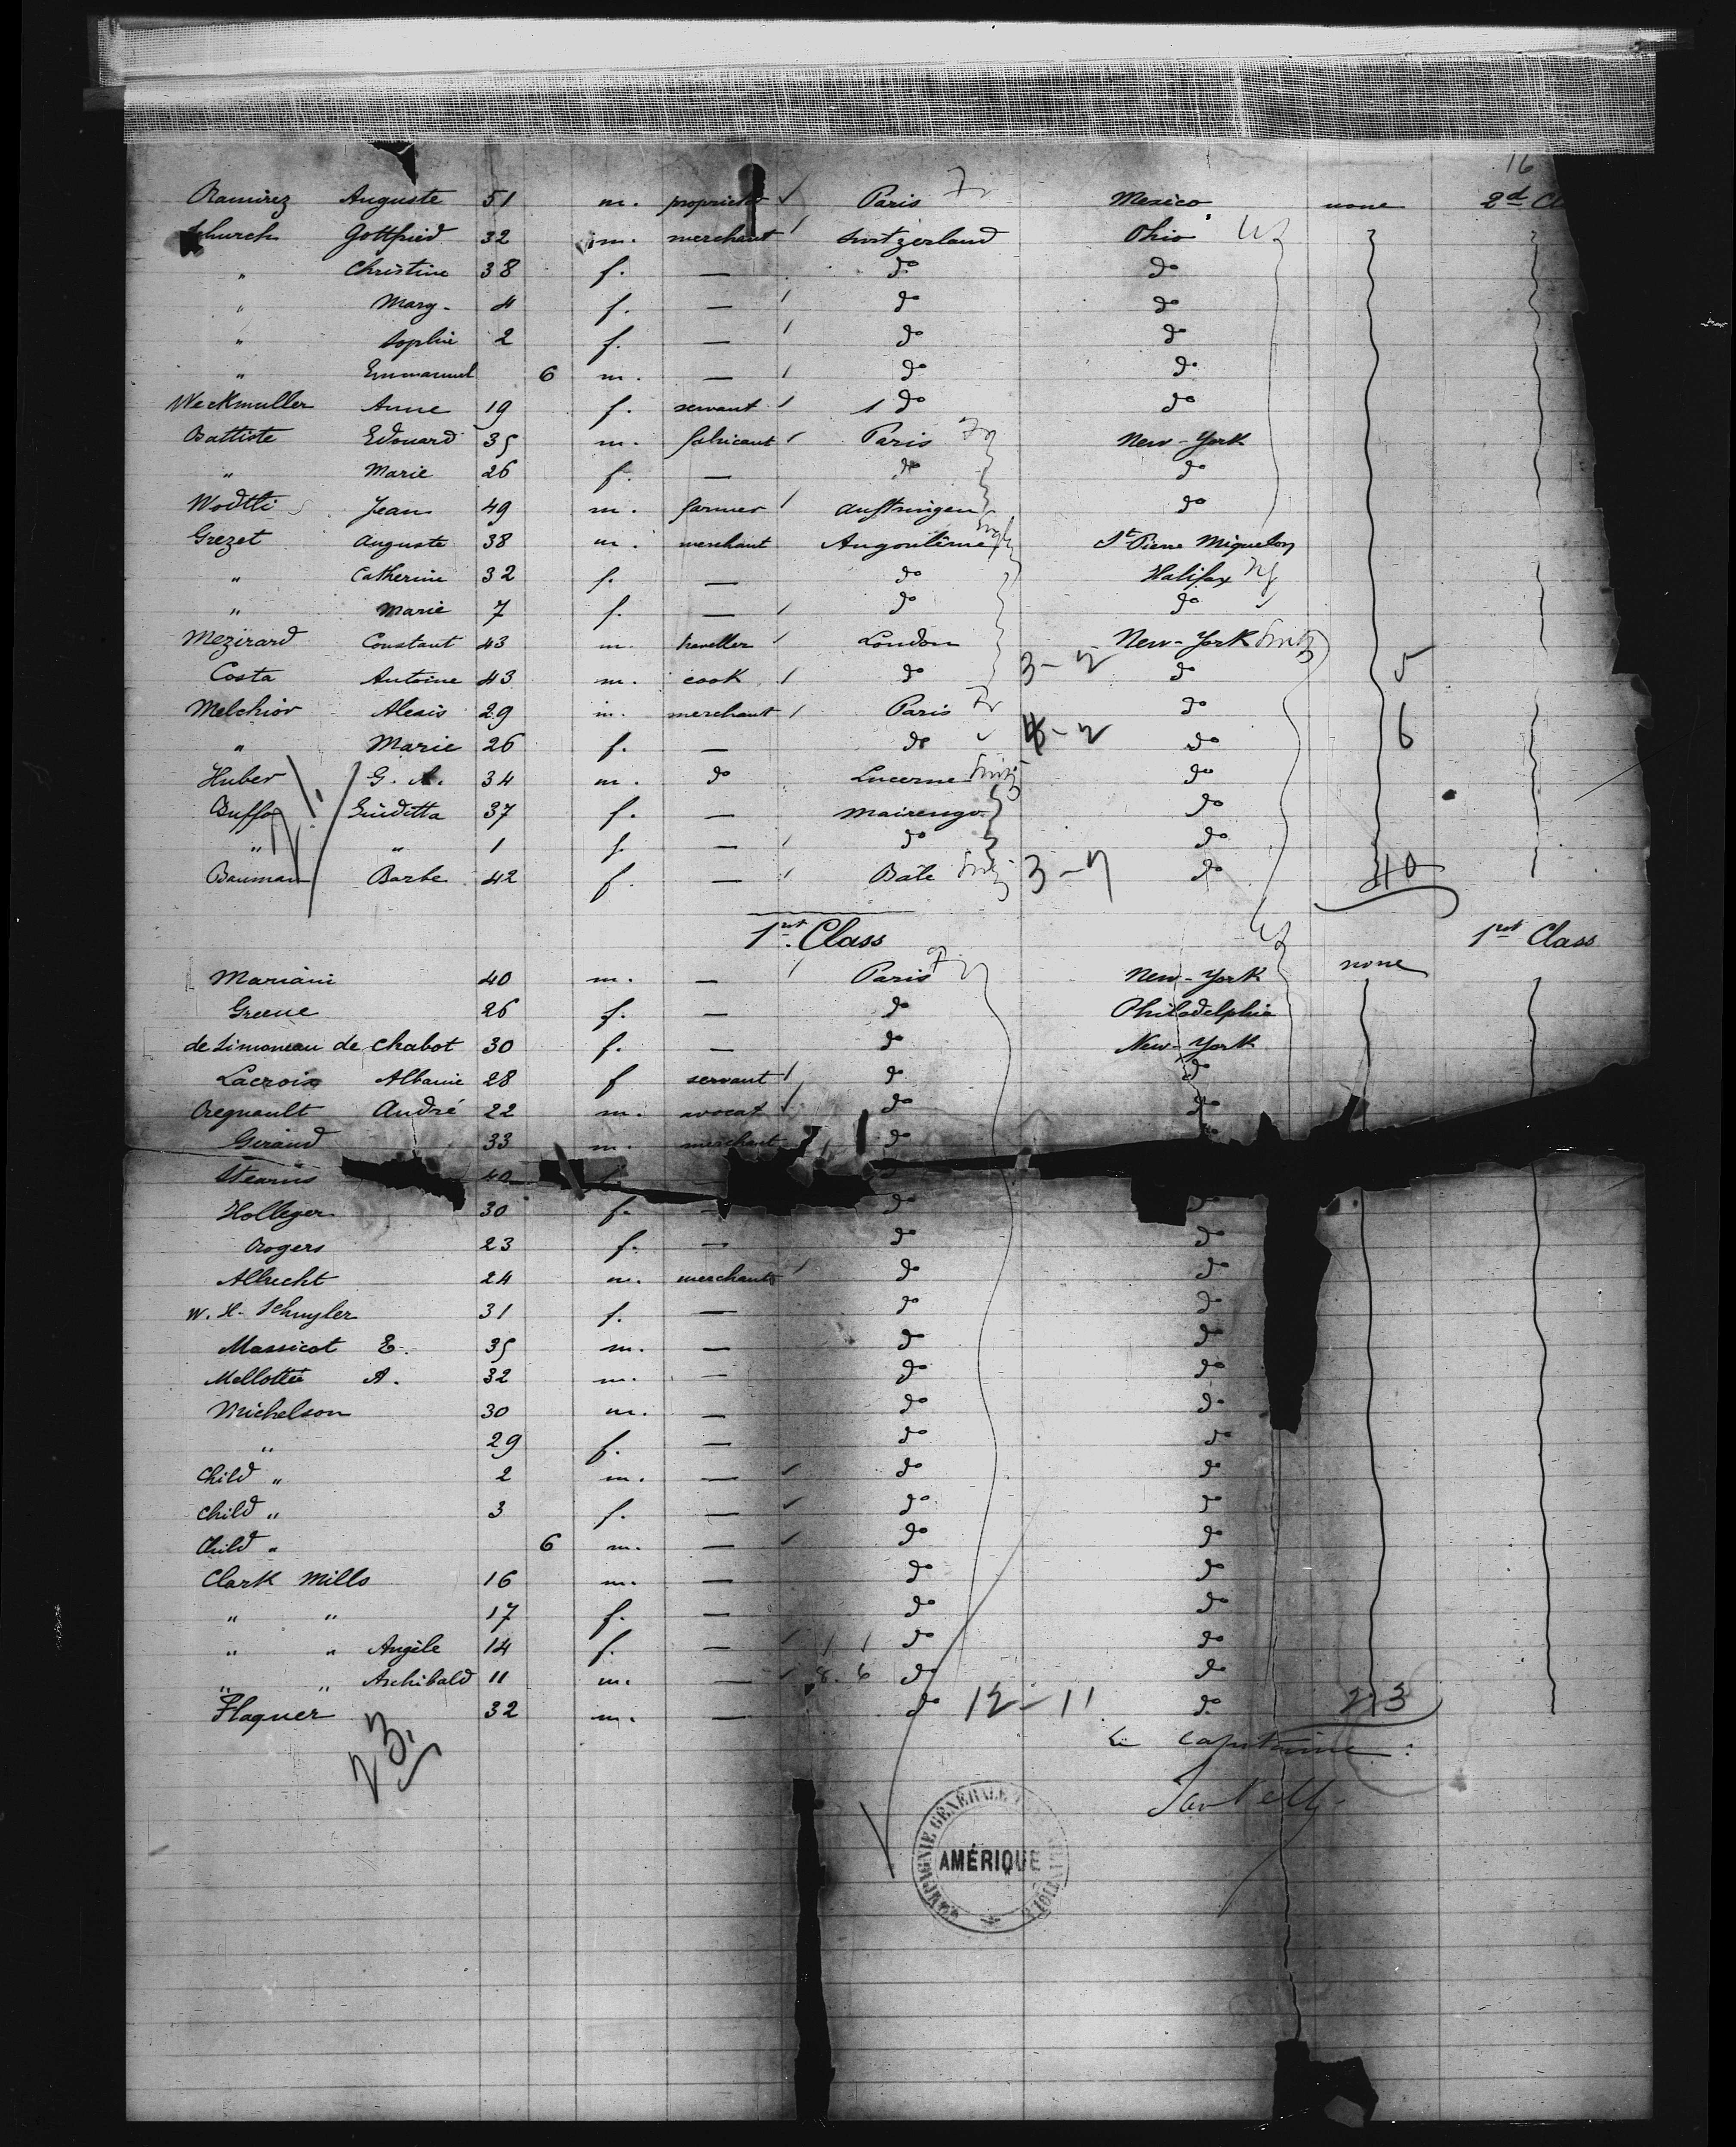 16
Ramirez Auguste 51 m. proprietor Paris Fr Mexico none 2d Cl
Schurch Gottfried 32 m. merchant Switzerland Ohio US
" Christine 38 f. — do do
" Mary 4 f. — do do
" Sophie 2 f. — do do
" Emmanuel 6 m. — do do
Weckmuller Anne 19 f. servant do do
Battiste Edouard 35 m. fabricant Paris New-York
" Marie 26 f. — do do
Wodtli Jean 49 m. farmer do
Grezet Auguste 38 m. merchant Angoulême St Pierre Miquelon
" Catherine 32 f. — do Halifax
" Marie 7 f. — do do
Mezirard Constant 43 m. traveller London New-York
Costa Antoine 43 m. cook do 3-2 do 5
Melchior Alexis 29 m. merchant Paris Fr do
" Marie 26 f. — do do 6
Huber G. A. 34 m. do Lucerne Switz do
Buffo Guiditta 37 f. — Mairengo do
" " 1 f. — do do
Bauman Barbe 42 f. — Bâle do 40
1rst Class 1rst Class
Mariani 40 m. — Paris New-York none
Greene 26 f. — do Philadelphia
de Limoneau de Chabot 30 f. — do New-York
Lacroix Albanie 28 f servant do do
Regnault André 22 m. avocat do do
Giraud 33 m. merchant do
Stearns 40
Holleger 30 f. — do do
Rogers 23 f. — do do
Albrecht 24 m. merchants do do
W. H. Schuyler 31 f. — do do
Massicot E. 35 m. — do do
Mellottée A. 32 m. — do do
Michelson 30 m. — do do
" 29 f. — do do
Child " 2 m. — do do
Child " 3 f. — do do
Child " 6 m. — do do
Clark Mills 16 m. — do do
" " 17 f. — do do
" " Angèle 14 f. — do do
" " Archibald 11 m. — 8. 6 do do
Flaquer 32 m. — do 12-11 do 23
23.
Le Capitaine:
COMPAGNIE GÉNÉRALE
AMÉRIQUE